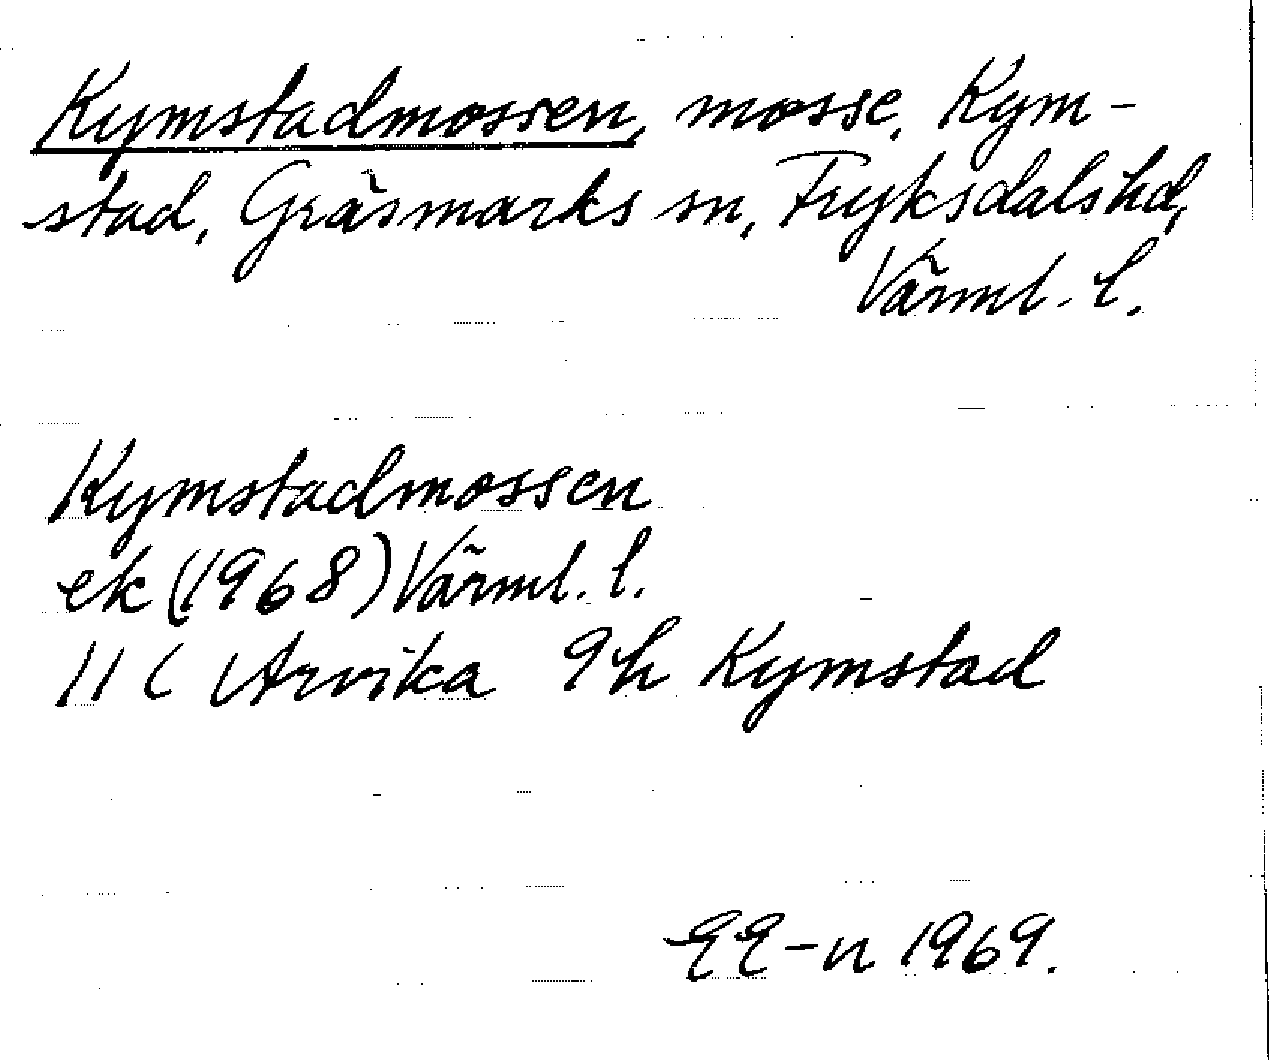 Kymstadmossen, mosse, Kym-
stad, Gräsmarks sn, Fryksdals hd,
Värml. l.
Kymstadmossen
ek (1968) Värml. l.
11 C Arvika 9h Kymstad
EE-n 1969.